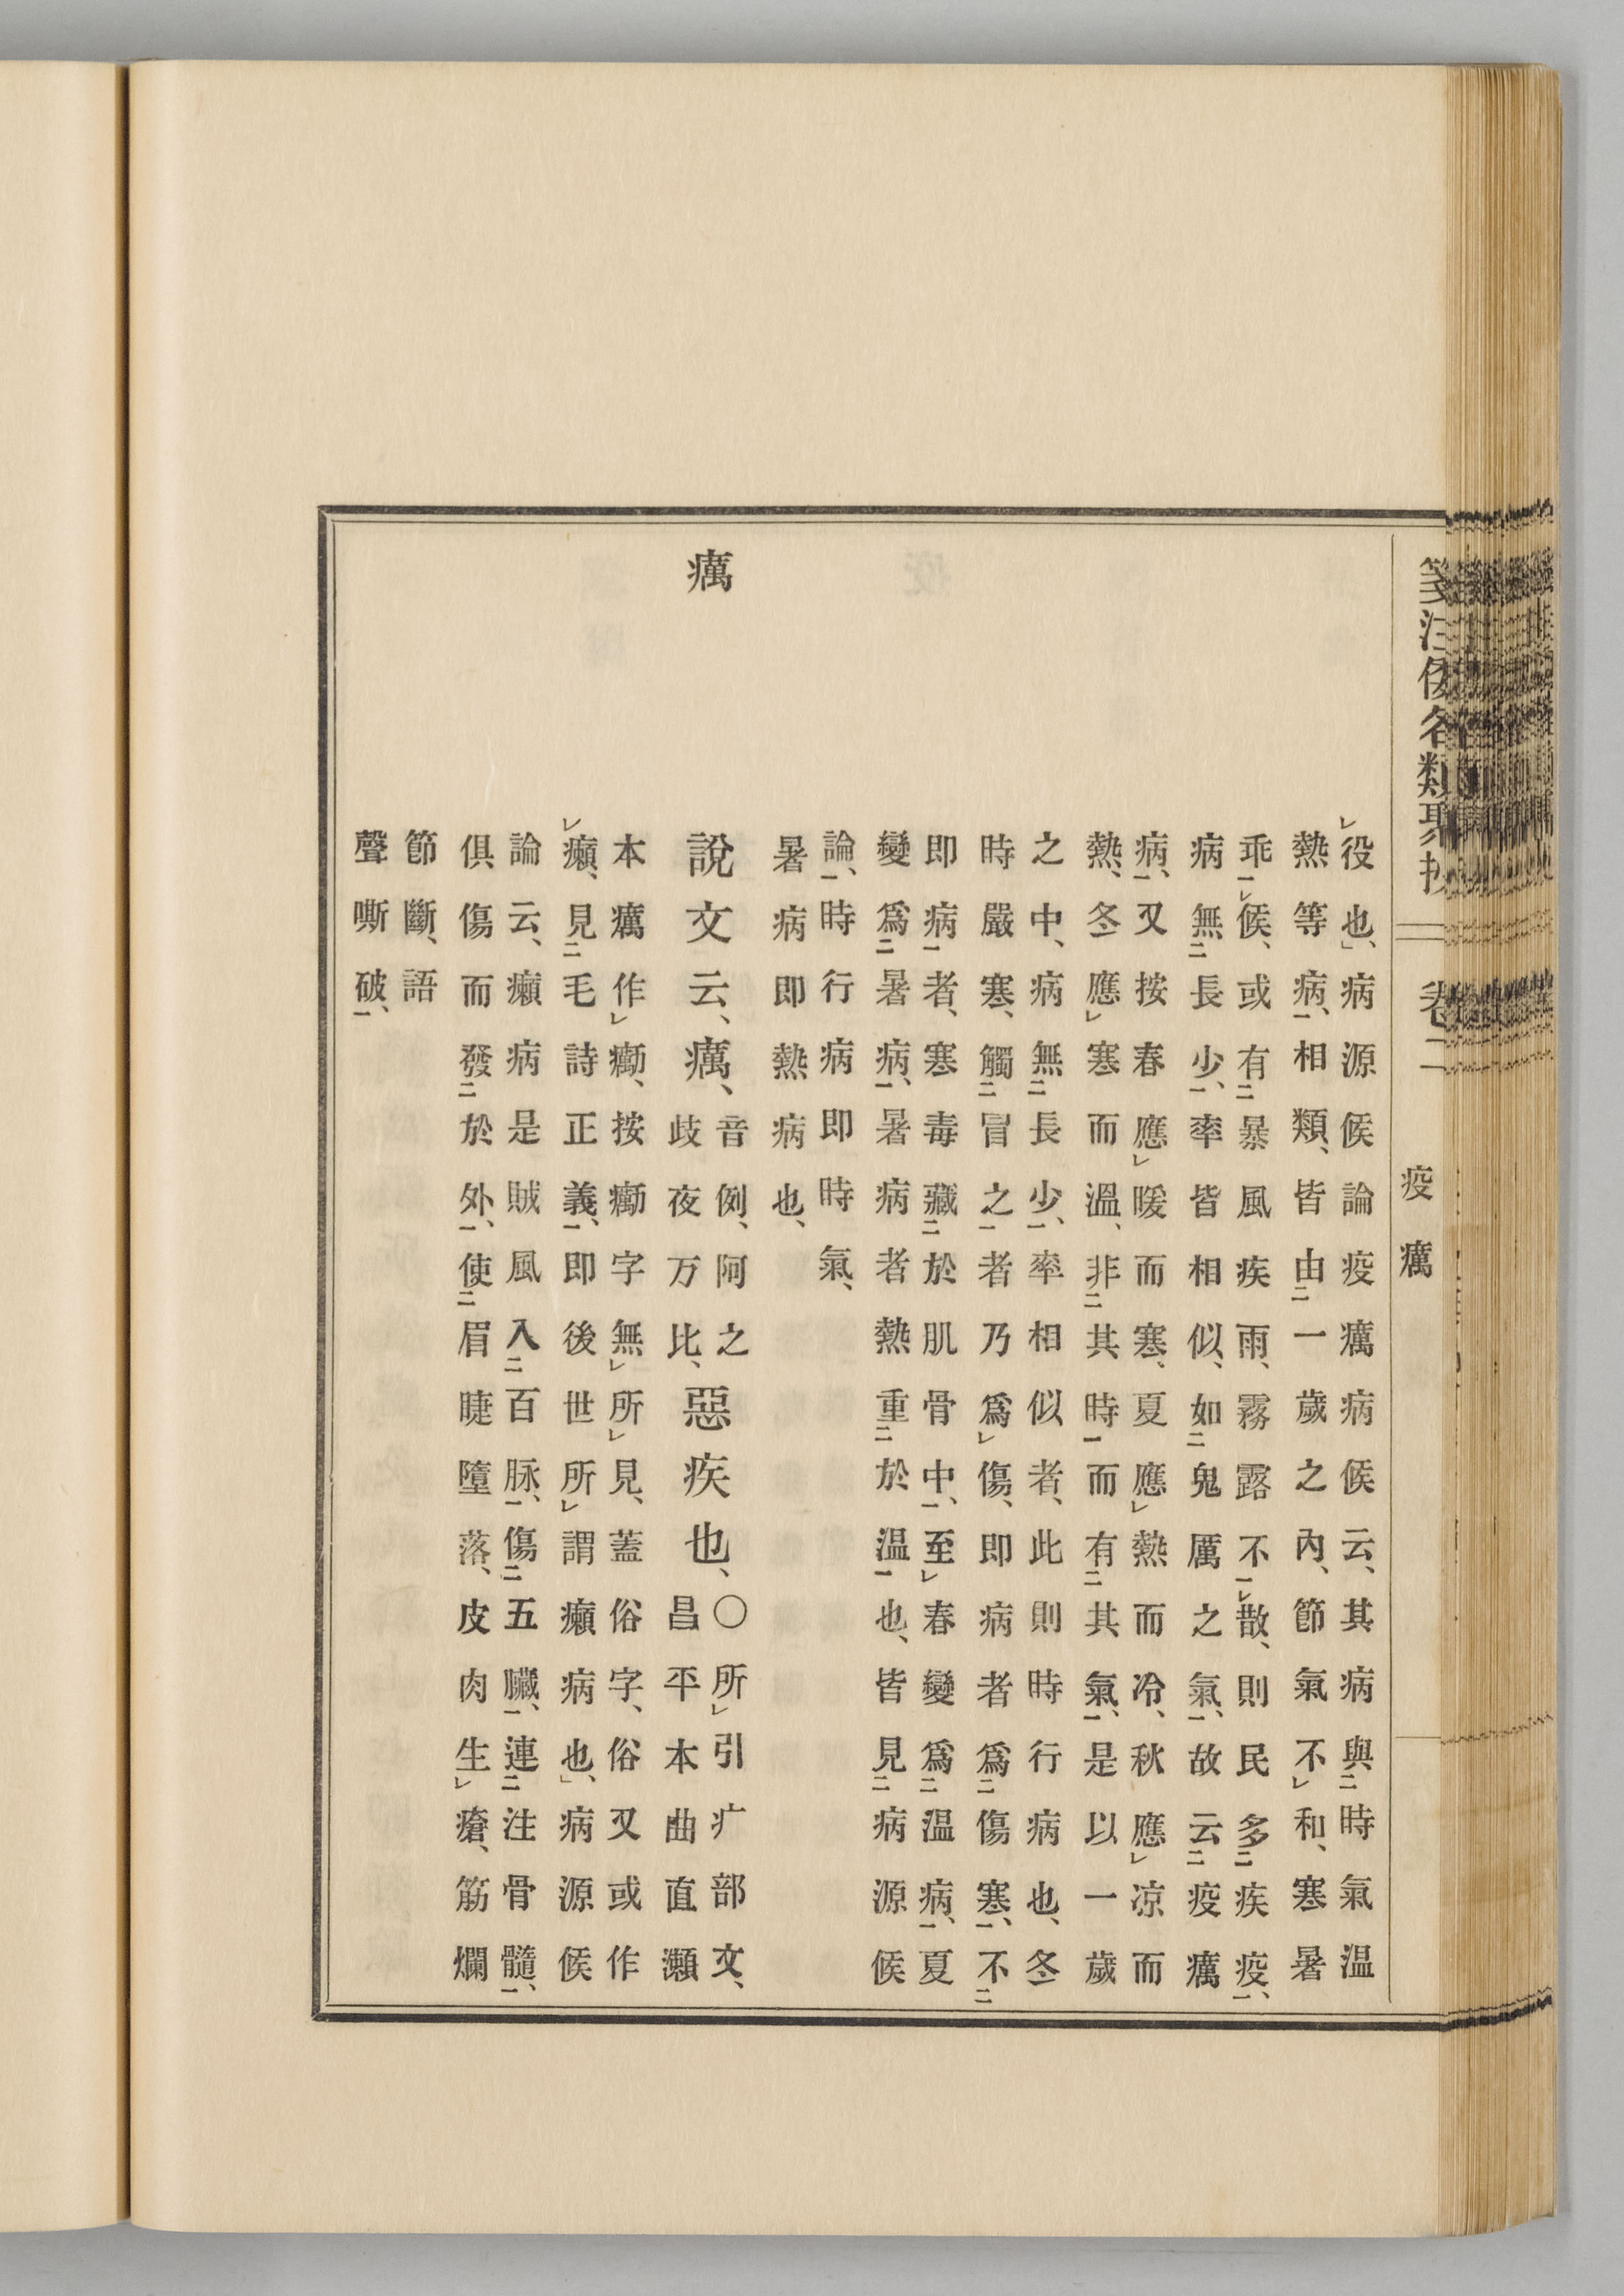 箋注倭名類聚抄 卷二 疫 癘
役也、病源候論疫癘病候云、其病與二時氣温
熱等病一、相類、皆由二一歲之內、節氣不レ和、寒暑
乖一レ候、或有二暴風疾雨、霧露不一レ散、則民多二疾疫一、
病無二長少一、率皆相似、如二鬼厲之氣一、故云二疫癘
病一、又按春應レ暖而寒、夏應レ熱而冷、秋應レ凉而
熱、冬應レ寒而溫、非二其時一而有二其氣一、是以一歲
之中、病無二長少一、率相似者、此則時行病也、冬
時嚴寒、觸二冒之一者乃爲レ傷、即病者爲二傷寒一、不二
即病一者、寒毒藏二於肌骨中一、至レ春變爲二温病一、夏
變爲二暑病一、暑病者熱重二於温一也、皆見二病源候
論一、時行病即時氣、
暑病即熱病也、
癘
說文云、癘、音例、阿之
歧夜万比、惡疾也、○所レ引疒部文、
昌平本曲直瀨
本癘作レ癆、按癆字無レ所レ見、蓋俗字、俗又或作
レ癩、見二毛詩正義一、即後世所レ謂癩病也、病源候
論云、癩病是賊風入二百脉一、傷二五臟一、連二注骨髓一、
俱傷而發二於外一、使二眉睫墮落、皮肉生レ瘡、筋爛
節斷、語
聲嘶破一、